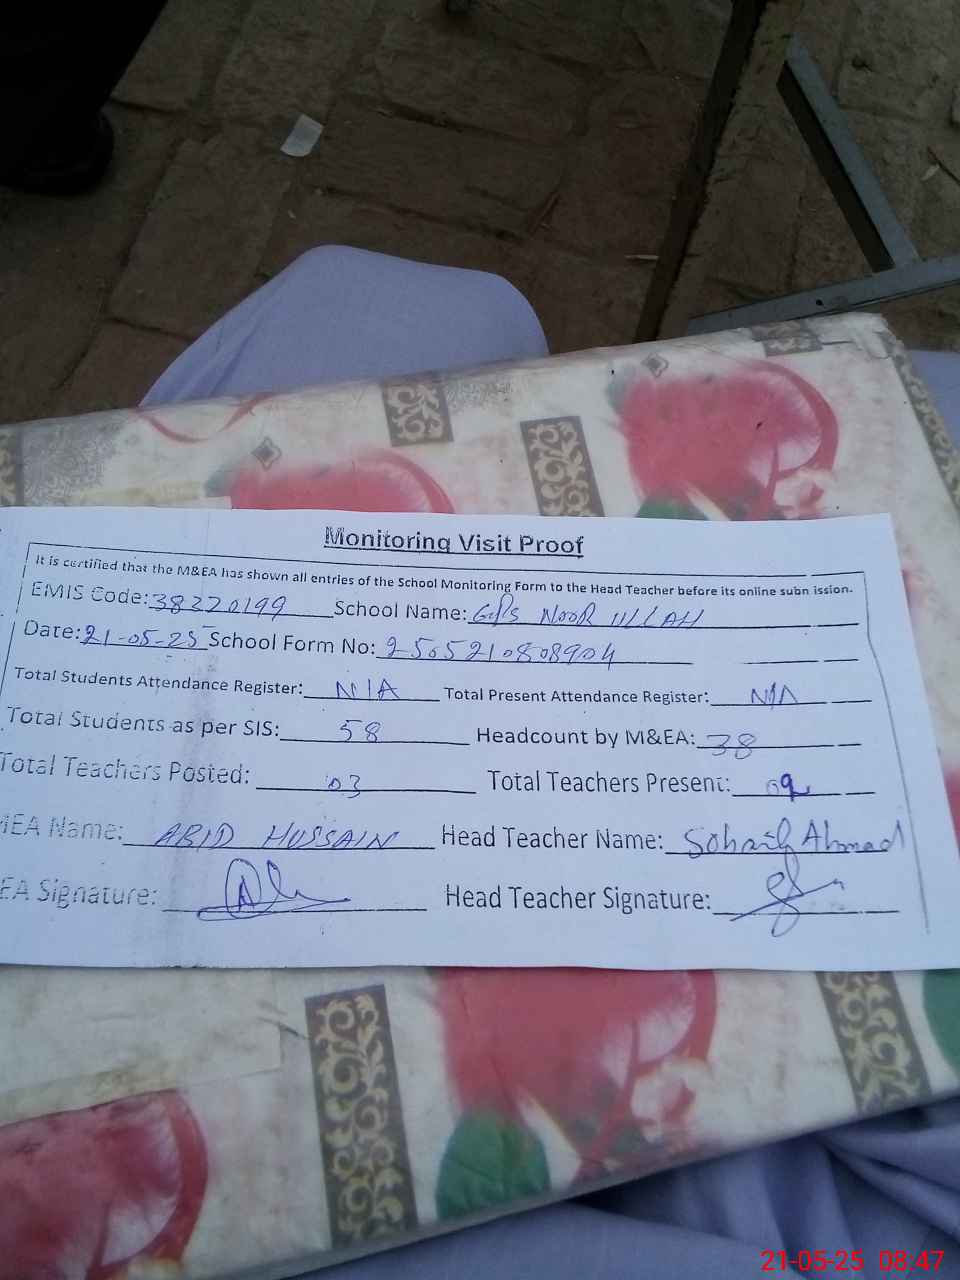 Monitoring Visit Proof
It is certified that the M&EA has shown all entries of the School Monitoring Form to the Head Teacher before its online subn ission.
EMIS Code: 38320199 School Name: GPS NOOR ULLAH
Date: 21-05-25 School Form No: 2505210808904
Total Students Attendance Register: N/A Total Present Attendance Register: N/A
Total Students as per SIS: 58 Headcount by M&EA: 38
Total Teachers Posted: 03 Total Teachers Present: 02
MEA Name: ABID HUSSAIN Head Teacher Name: Sohail Ahmad
EA Signature: Head Teacher Signature:
21-05-25 08:47